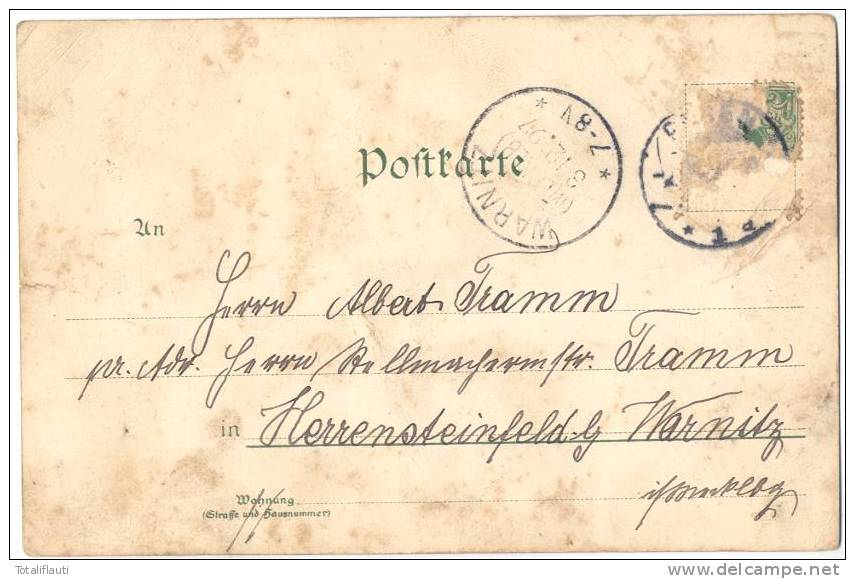 Postkarte
WARNITZ
3 12 97
* 7-8V *
An
Herrn Albert Tramm
pr. Adr. Herrn Stellmachermstr. Tramm
in Herrensteinfeld b Warnitz
i/ Mecklbg
Wohnung
(Straße und Hausnummer)
Totaliflauti
delcampe.net